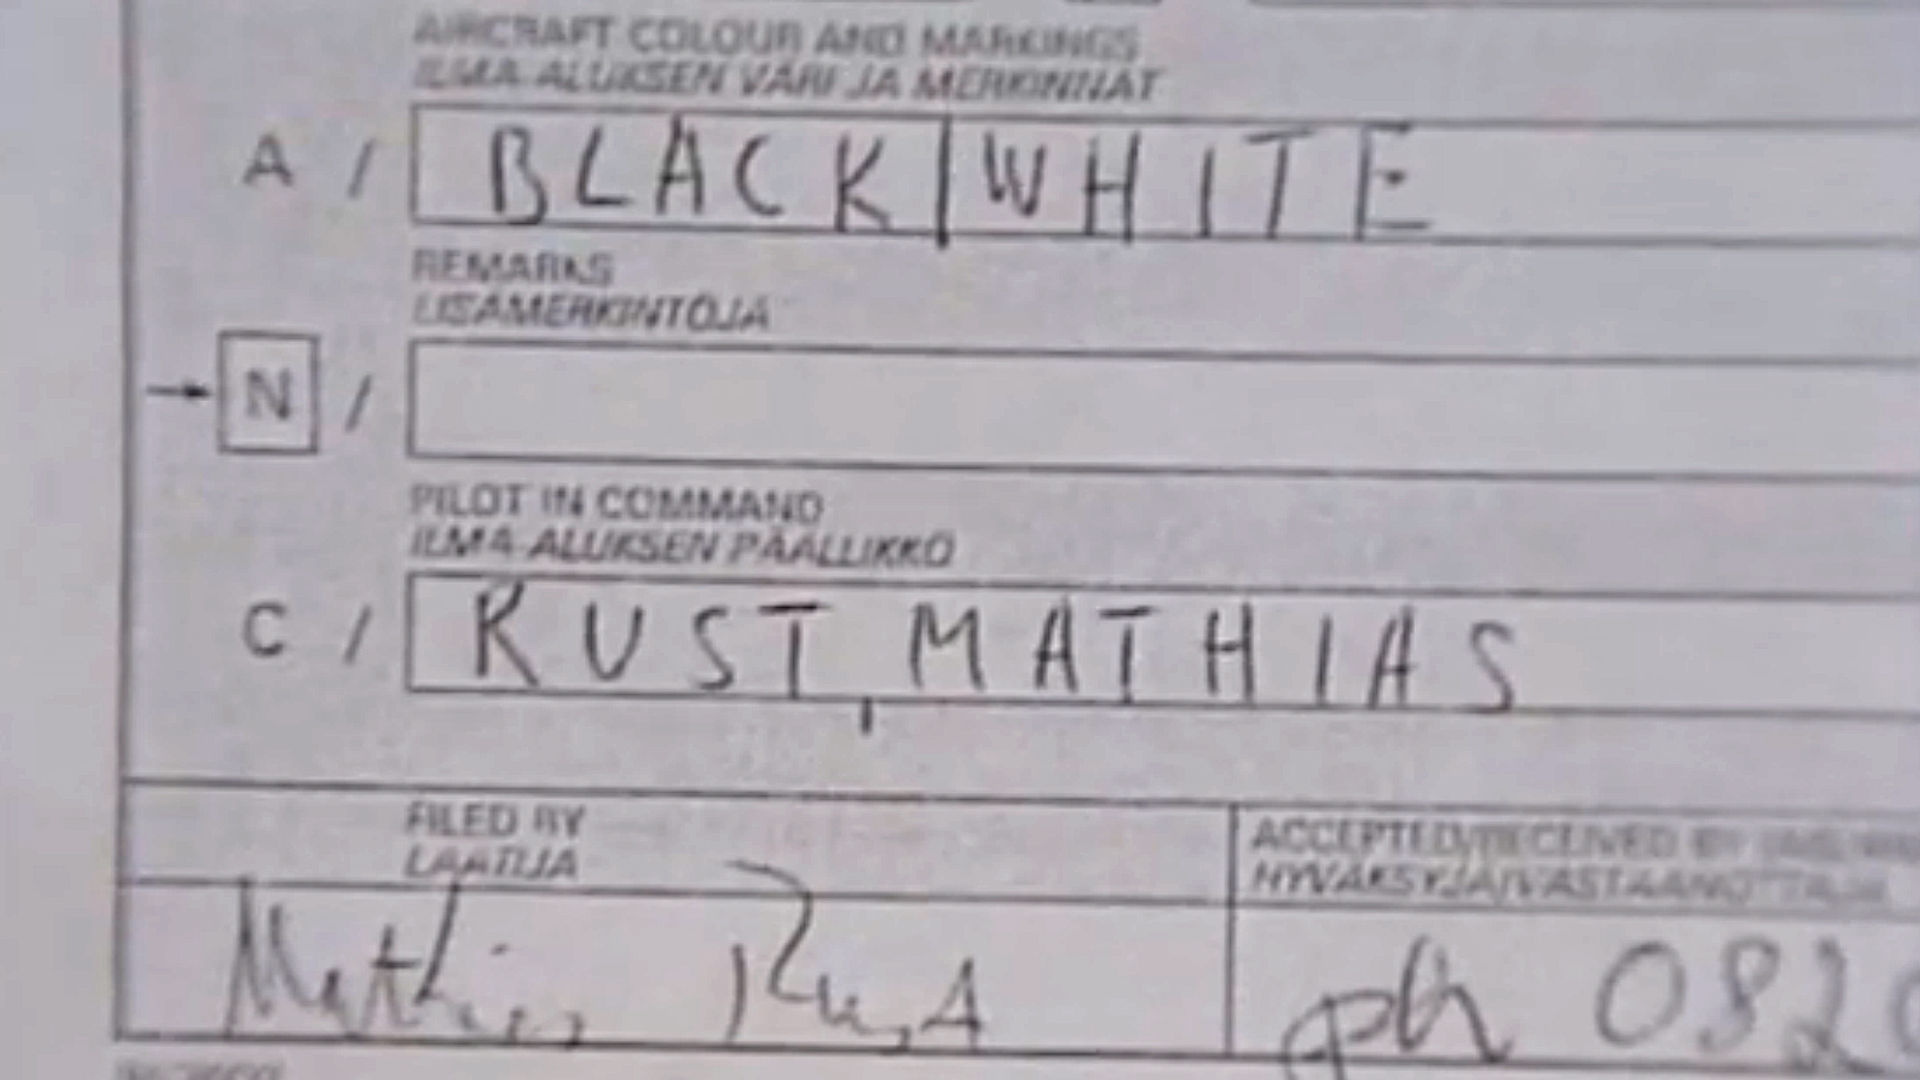 AIRCRAFT COLOUR AND MARKINGS
ILMA-ALUKSEN VÄRI JA MERKINNÄT
A / BLACK|WHITE
REMARKS
LISÄMERKINTÖJÄ
→ N /
PILOT IN COMMAND
ILMA-ALUKSEN PÄÄLLIKKÖ
C / RUST, MATHIAS
FILED BY
LAATIJA
ACCEPTED/RECEIVED BY
HYVÄKSYJÄ/VASTAANOTTAJA
Mathias Rust
ph 082